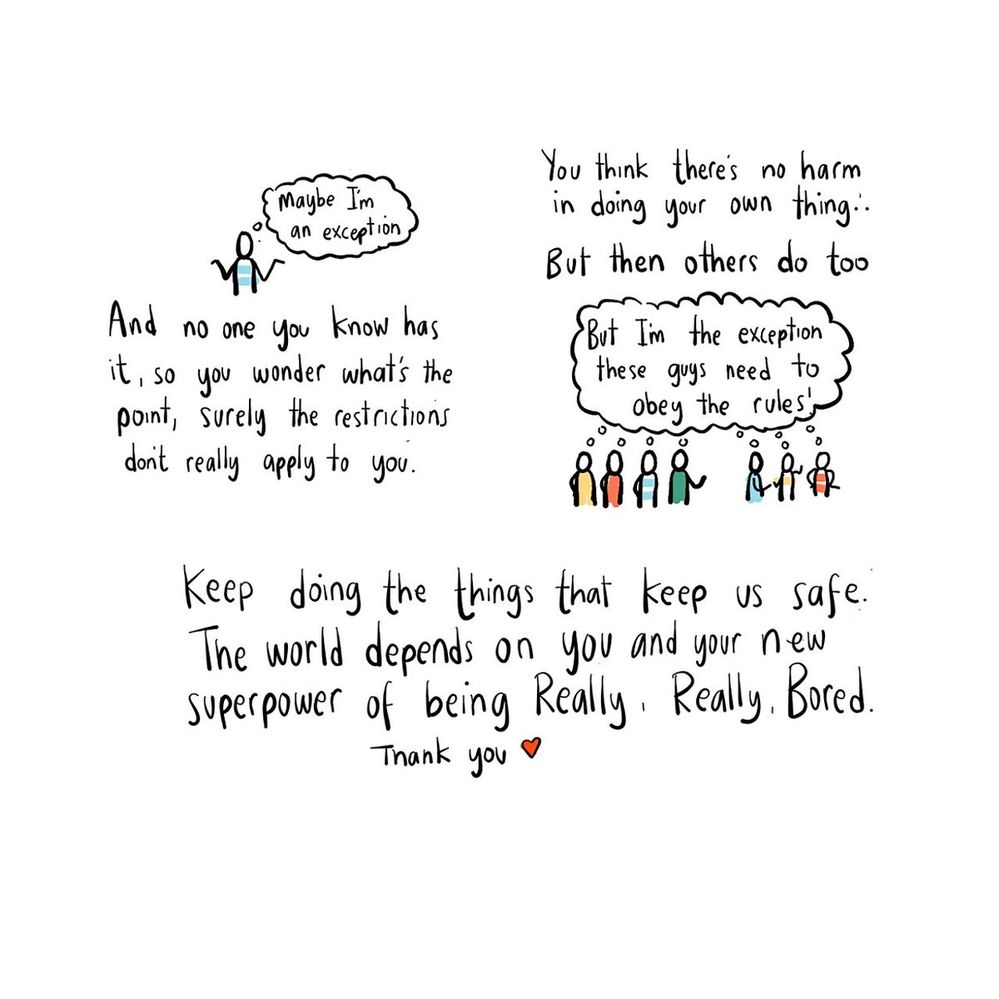 Maybe I'm
an exception
And no one you know has
it, so you wonder what's the
point, surely the restrictions
don't really apply to you.
You think there's no harm
in doing your own thing...
But then others do too
But I'm the exception
these guys need to
obey the rules!
Keep doing the things that keep us safe.
The world depends on you and your new
superpower of being Really, Really, Bored.
Thank you ♥